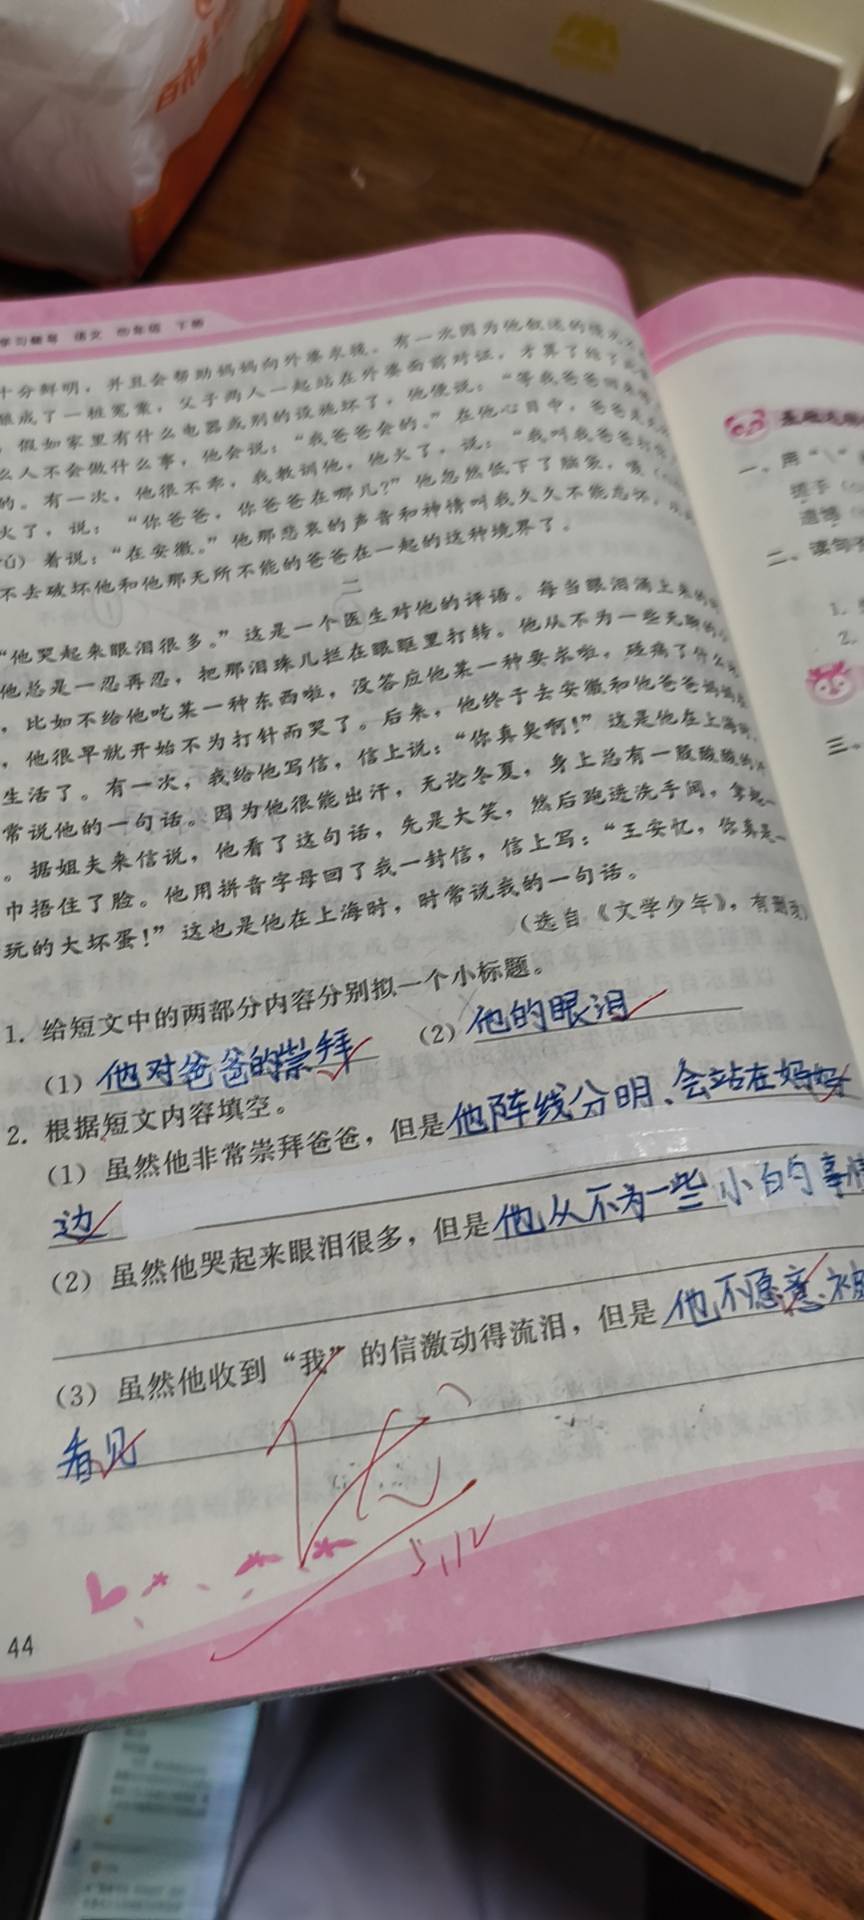 学习辅导 语文 四年级 下册
十分鲜明，并且会帮助妈妈向外婆求饶。有一次因为他叙述的情况
酿成了一桩冤案，父子两人一起站在外婆面前对证，才算了结了
，假如家里有什么电器或别的设施坏了，他便说：“等我爸爸回来
么人不会做什么事，他会说：“我爸爸会的。”在他心目中，爸爸是
的。有一次，他很不乖，我教训他，他火了，说：“我叫我爸爸打
火了，说：“你爸爸，你爸爸在哪儿？”他忽然低下了脑袋，嗫
rú）着说：“在安徽。”他那悲哀的声音和神情叫我久久不能忘怀，
不去破坏他和他那无所不能的爸爸在一起的这种境界了。
二
“他哭起来眼泪很多。”这是一个医生对他的评语。每当眼泪涌上来的
他总是一忍再忍，把那泪珠儿拦在眼眶里打转。他从不为一些无聊的
，比如不给他吃某一种东西啦，没答应他某一种要求啦，碰痛了什么
，他很早就开始不为打针而哭了。后来，他终于去安徽和他爸爸妈妈
生活了。有一次，我给他写信，信上说：“你真臭啊！”这是他在上海时，
常说他的一句话。因为他很能出汗，无论冬夏，身上总有一股酸酸的
。据姐夫来信说，他看了这句话，先是大笑，然后跑进洗手间，拿起一
巾捂住了脸。他用拼音字母回了我一封信，信上写：“王安忆，你真是一
玩的大坏蛋！”这也是他在上海时，时常说我的一句话。
（选自《文学少年》，有删改）
1. 给短文中的两部分内容分别拟一个小标题。
（1）他对爸爸的崇拜 （2）他的眼泪
2. 根据短文内容填空。
（1）虽然他非常崇拜爸爸，但是他阵线分明、会站在妈妈
边
（2）虽然他哭起来眼泪很多，但是他从不为一些小的事情
（3）虽然他收到“我”的信激动得流泪，但是他不愿意被
看见
优
5.12
44
一、用“\”
二、读句子
1.
2.
三、